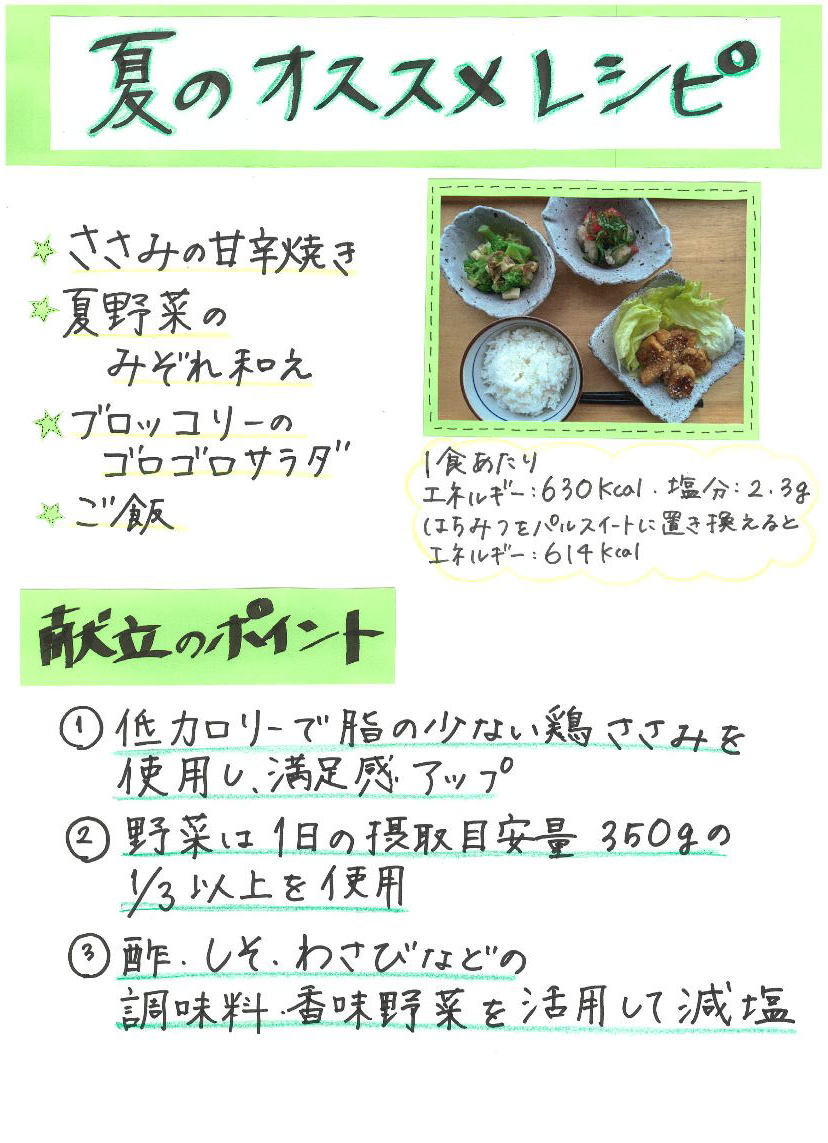 夏のオススメレシピ
ささみの甘辛焼き
夏野菜の
みぞれ和え
ブロッコリーの
ゴロゴロサラダ
ご飯
1食あたり
エネルギー:630kcal.塩分:2.3g
はちみつをパルスイートに置き換えると
エネルギー:614kcal
献立のポイント
① 低カロリーで脂の少ない鶏ささみを
使用し、満足感アップ
② 野菜は1日の摂取目安量350gの
1/3以上を使用
③ 酢.しそ.わさびなどの
調味料.香味野菜を活用して減塩